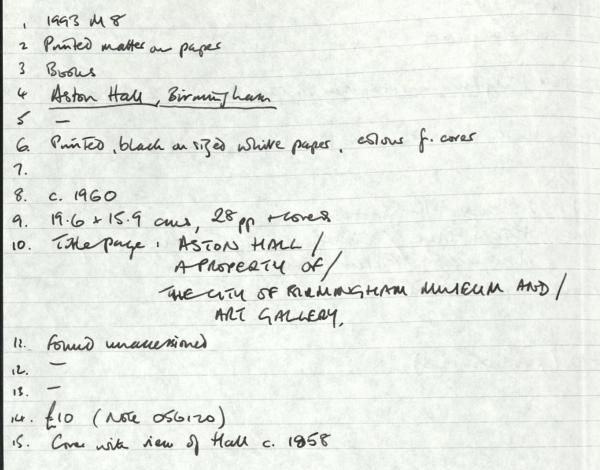 1. 1993 M 8
2 Printed matter on paper
3 Books
4 Aston Hall, Birmingham
5 —
6. Printed, black on sized white paper, colour f. cover
7.
8. c. 1960
9. 19.6 x 15.9 cms, 28pp + covers
10. Title page: ASTON HALL /
A PROPERTY OF/
THE CITY OF BIRMINGHAM MUSEUM AND/
ART GALLERY.
11. Found unaccessioned
12. —
13. —
14. £10 (Note 056120)
15. Cover with view of Hall c. 1858